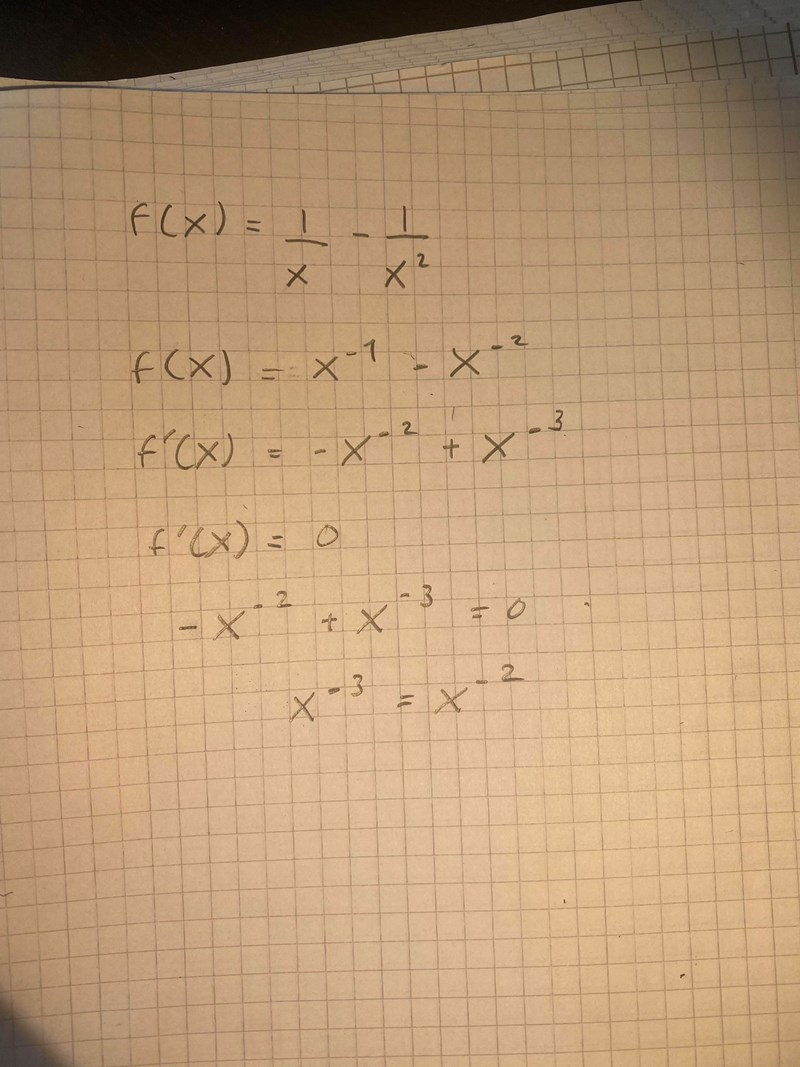 f(x) = 1/x - 1/x²
f(x) = x⁻¹ - x⁻²
f'(x) = -x⁻² + x⁻³
f'(x) = 0
-x⁻² + x⁻³ = 0
x⁻³ = x⁻²